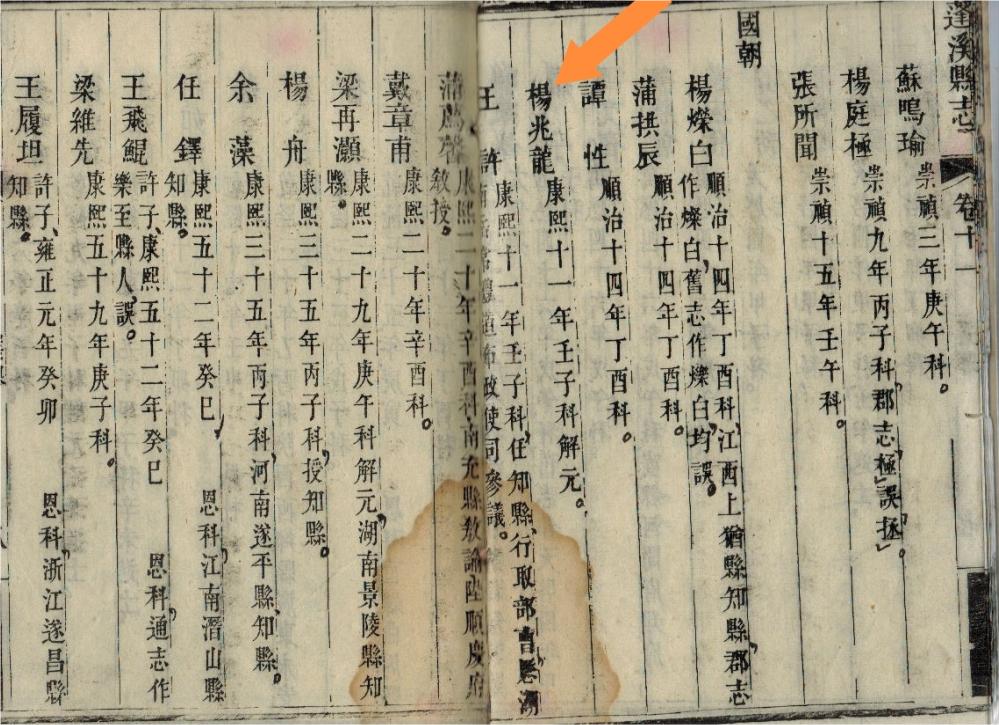 蓬溪縣志 卷十一
蘇鳴瑜 崇禎三年庚午科。
楊庭極 崇禎九年丙子科，郡志「極」誤「拯」。
張所聞 崇禎十五年壬午科。
國朝
楊燦白 順治十四年丁酉科，江西上猶縣知縣，郡志
作燦白，舊志作爍白，均誤。
蒲拱辰 順治十四年丁酉科。
譚性 順治十四年丁酉科。
楊兆龍 康熙十一年壬子科解元。
王許 康熙十一年壬子科，任知縣，行取部曹，
政使司參議。
康熙二十年辛酉科，南充縣敎諭，陞順慶府
敎授。
戴章甫 康熙二十年辛酉科。
梁再灝 康熙二十九年庚午科解元，湖南景陵縣知
縣。
楊舟 康熙三十五年丙子科，授知縣。
余藻 康熙三十五年丙子科，河南遂平縣知縣。
任鐸 康熙五十二年癸巳 恩科，江南潛山縣
知縣。
王飛鯤 許子，康熙五十二年癸巳 恩科，通志作
樂至縣人，誤。
梁維先 康熙五十九年庚子科。
王履坦 許子，雍正元年癸卯 恩科，浙江遂昌縣
知縣。